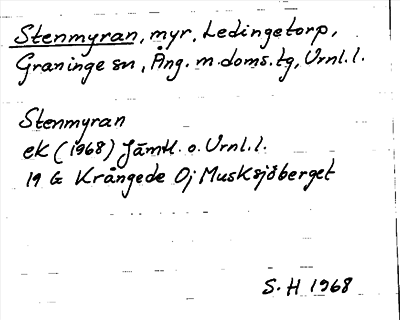 Stenmyran, myr, Ledingetorp,
Graninge sn, Ång. m. doms.tg, Vrnl.l.
Stenmyran
ek (1968) Jämtl. o. Vrnl.l.
19 G Krångede Oj Musksjöberget
S.H 1968